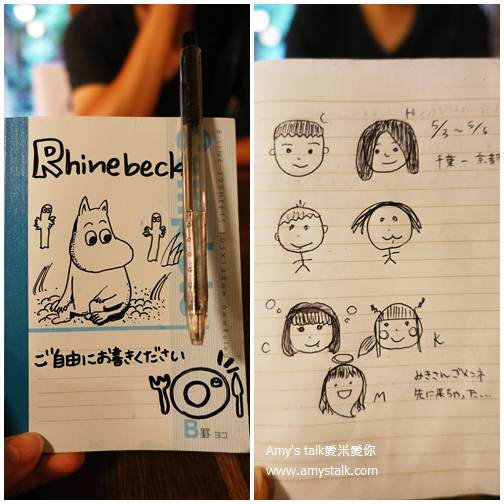 Rhinebeck
ご自由にお書きください
B罫 ヨコ
C
H
5/3〜5/6
千葉一京都
C
K
M
みきさんゴメンネ
先に来ちゃった...
Amy's talk愛米愛你
www.amystalk.com